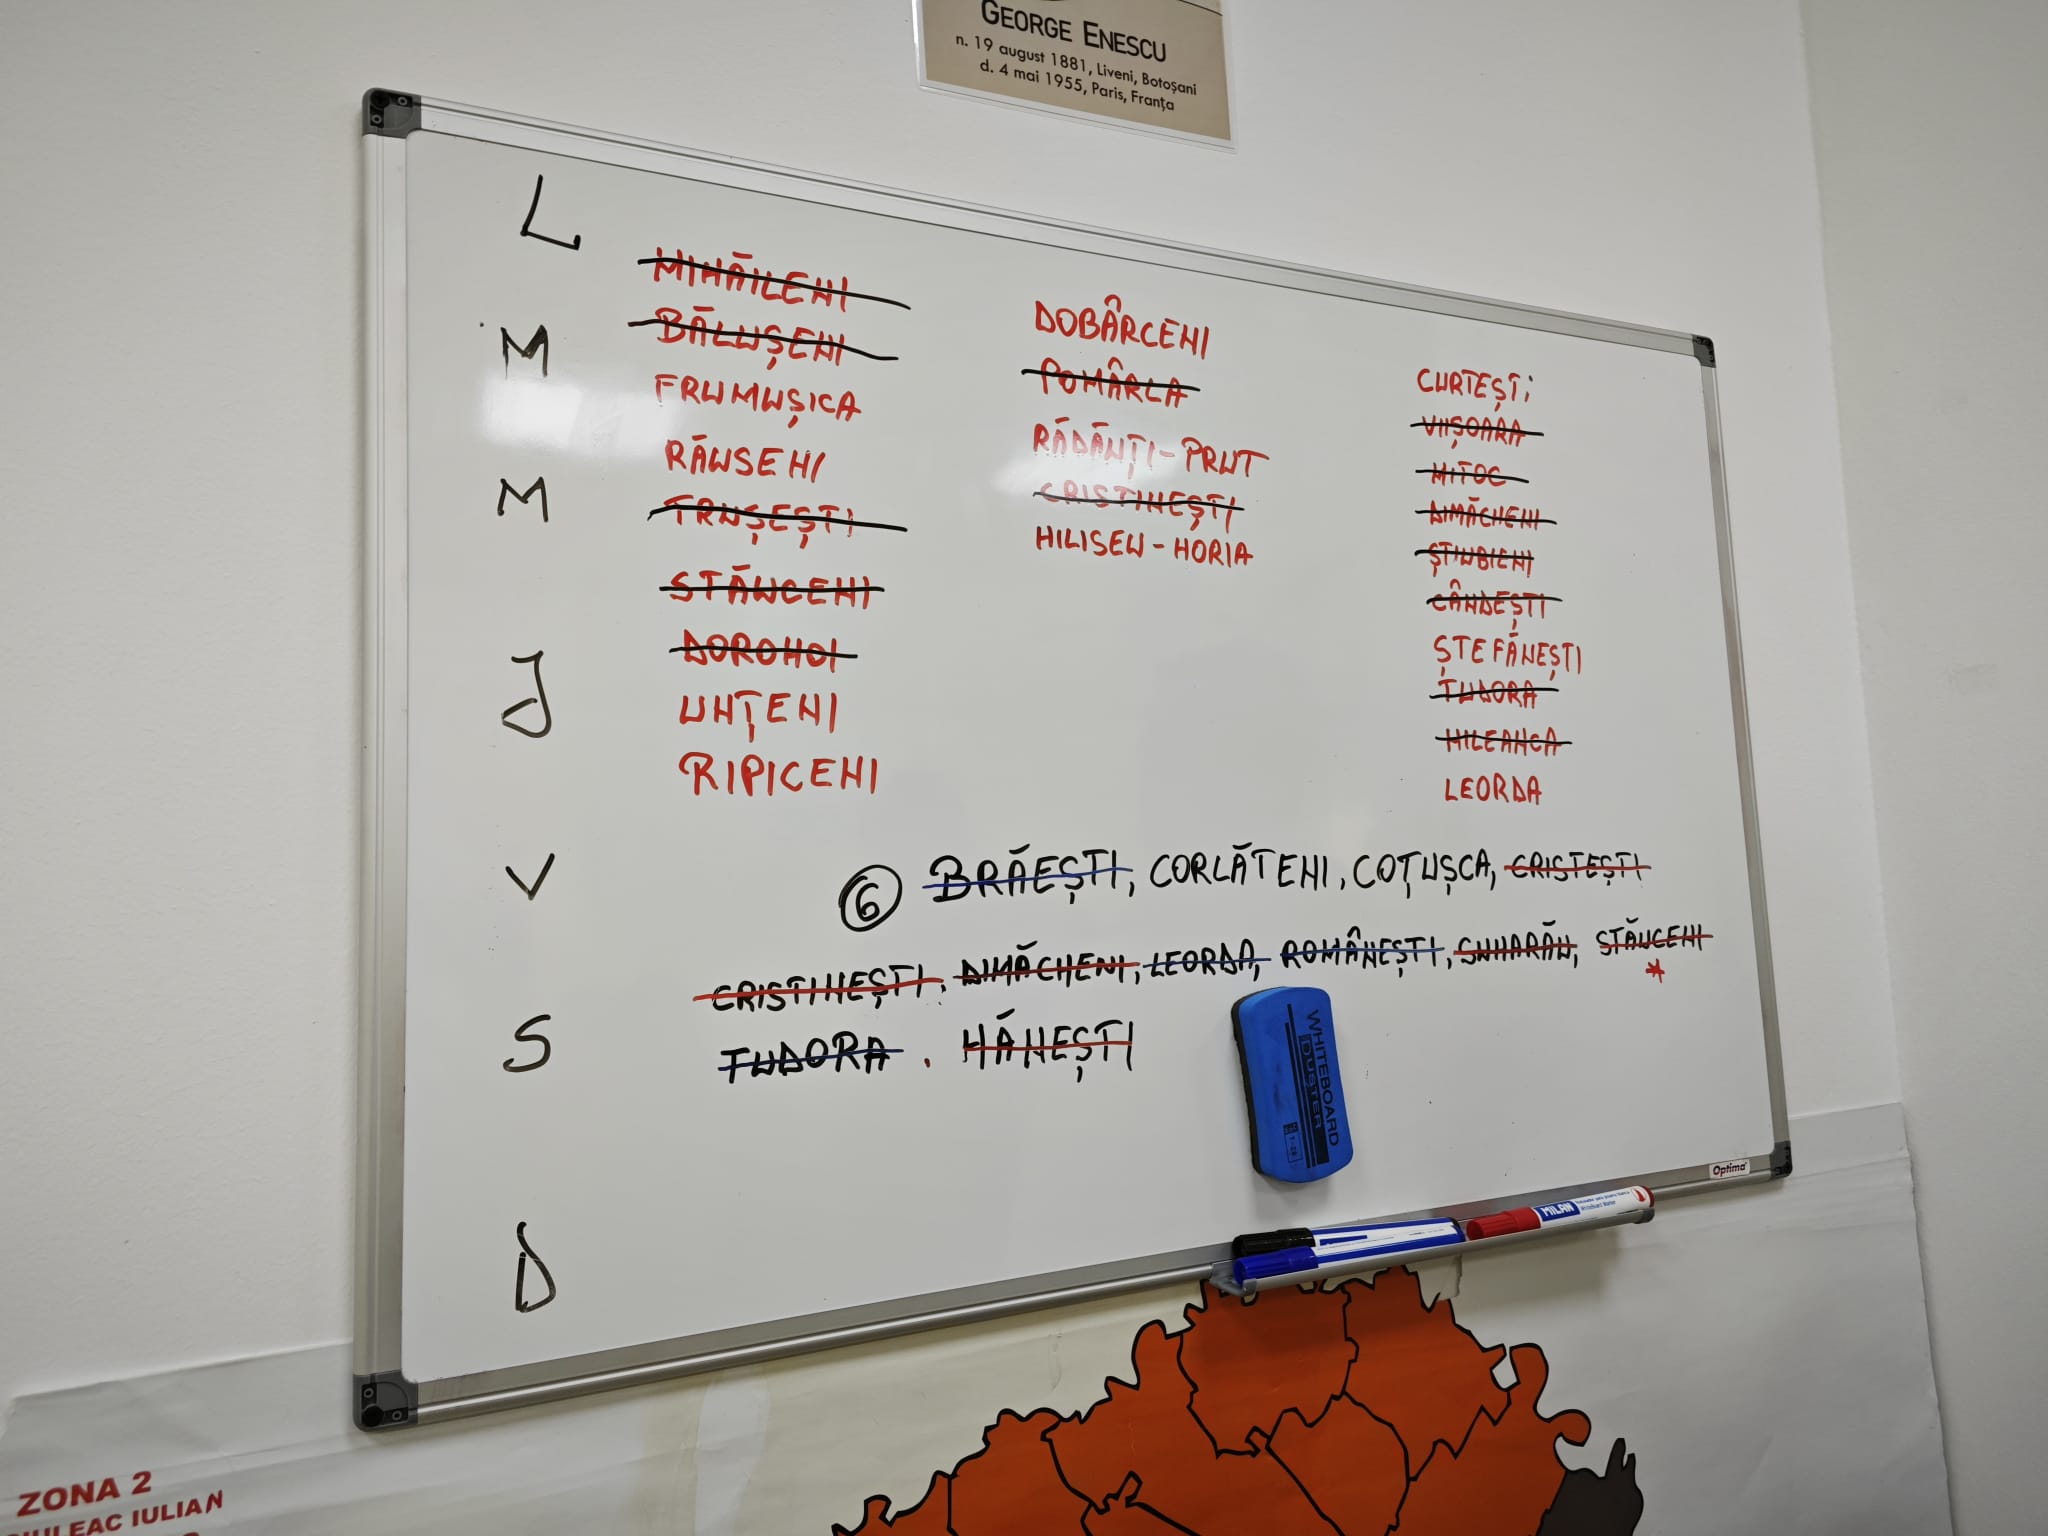 GEORGE ENESCU
n. 19 august 1881, Liveni, Botoșani
d. 4 mai 1955, Paris, Franța
L
M
M
J
V
S
D
MIHĂILENI
BĂLUȘENI
FRUMUȘICA
RĂUSENI
TRUȘEȘTI
STĂUCENI
DOROHOI
UNȚENI
RIPICENI
DOBÂRCENI
POMÂRLA
RĂDĂUȚI-PRUT
CRISTINEȘTI
HILISEU-HORIA
CURTEȘTi
VIIȘOARA
MITOC
DIMĂCHENI
ȘTIUBIENI
CÂNDEȘTI
ȘTEFĂNEȘTI
TUDORA
MILEANCA
LEORDA
6 BRĂEȘTI, CORLĂTENI, COȚUȘCA, CRISTEȘTI
CRISTINEȘTI, DIMĂCHENI, LEORDA, ROMÂNEȘTI, SUHARĂU, STĂUCENI
*
TUDORA . HĂNEȘTI
WHITEBOARD
DUSTER
Optima
MILAN
ZONA 2
IULIAN